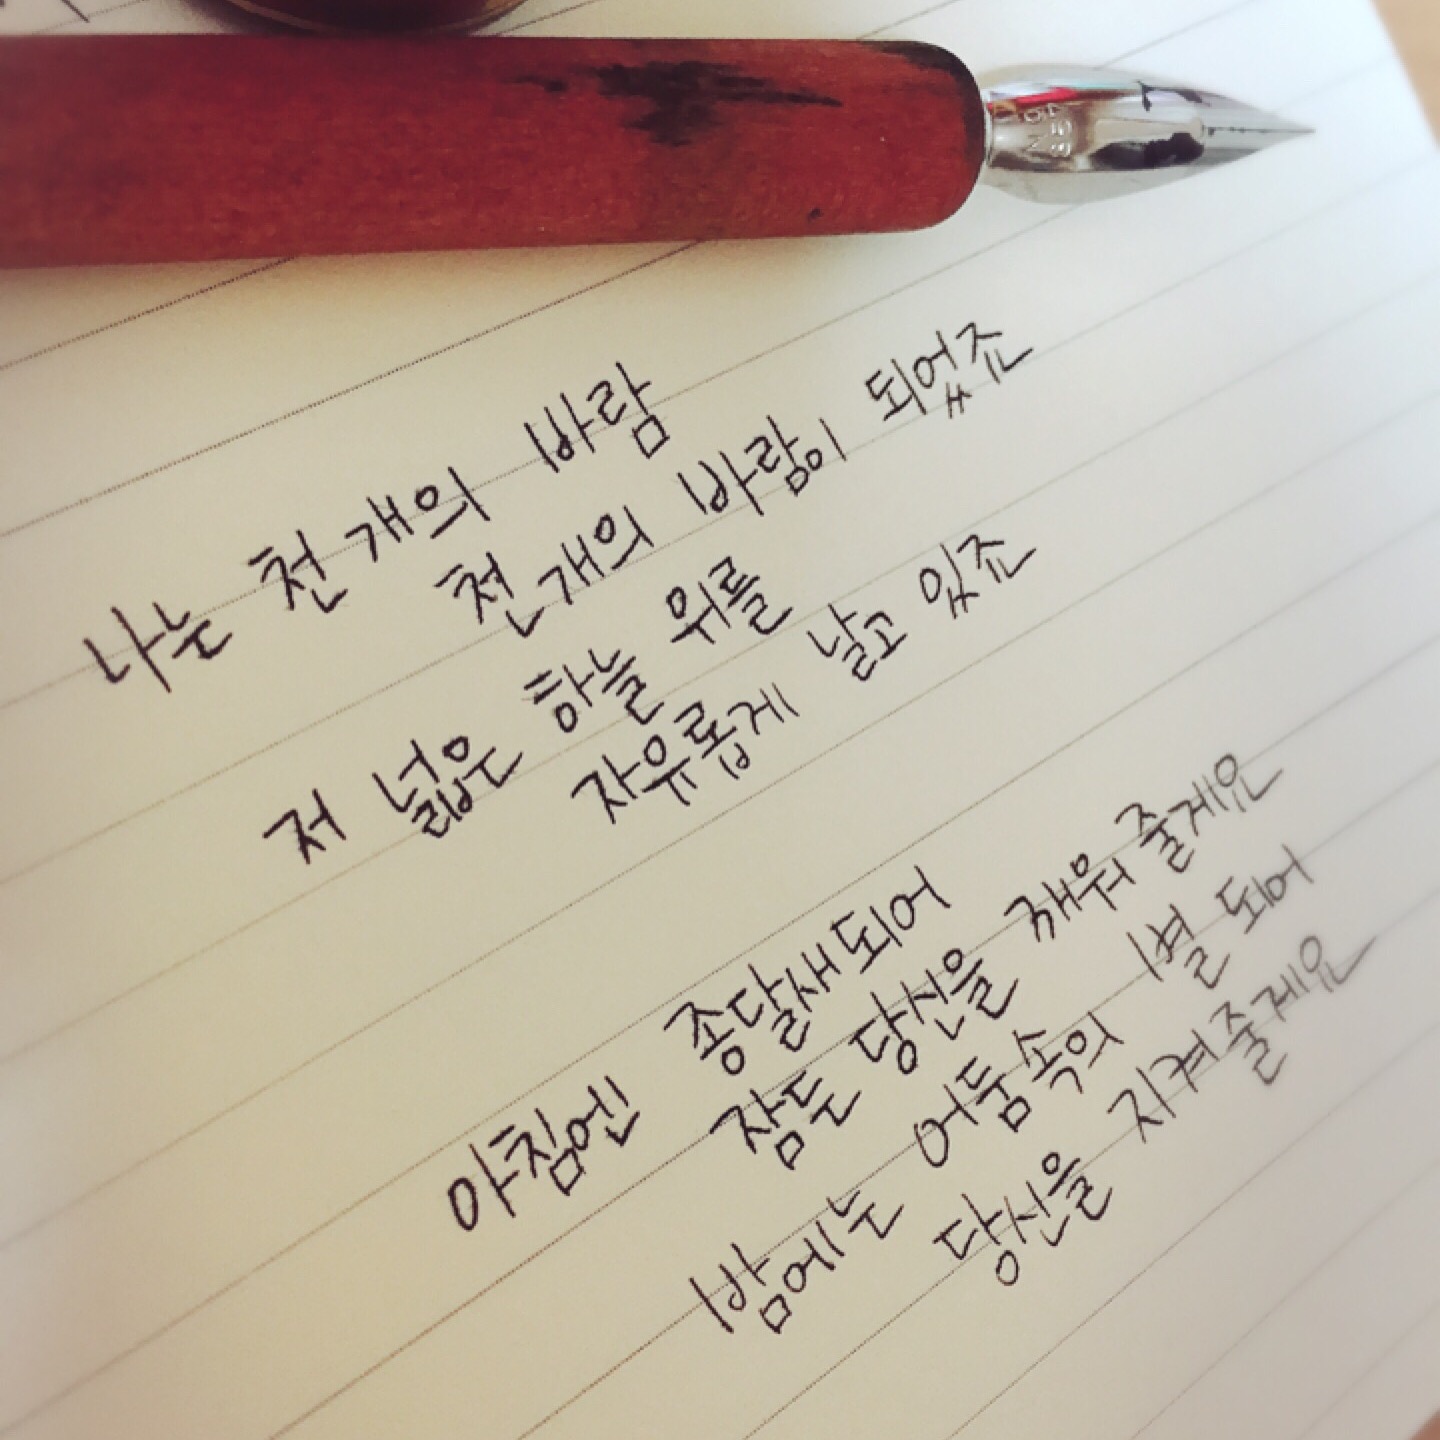 나는 천 개의 바람
천 개의 바람이 되었죠
저 넓은 하늘 위를
자유롭게 날고 있죠
아침엔 종달새 되어
잠든 당신을 깨워 줄게요
밤에는 어둠 속의 별 되어
당신을 지켜 줄게요